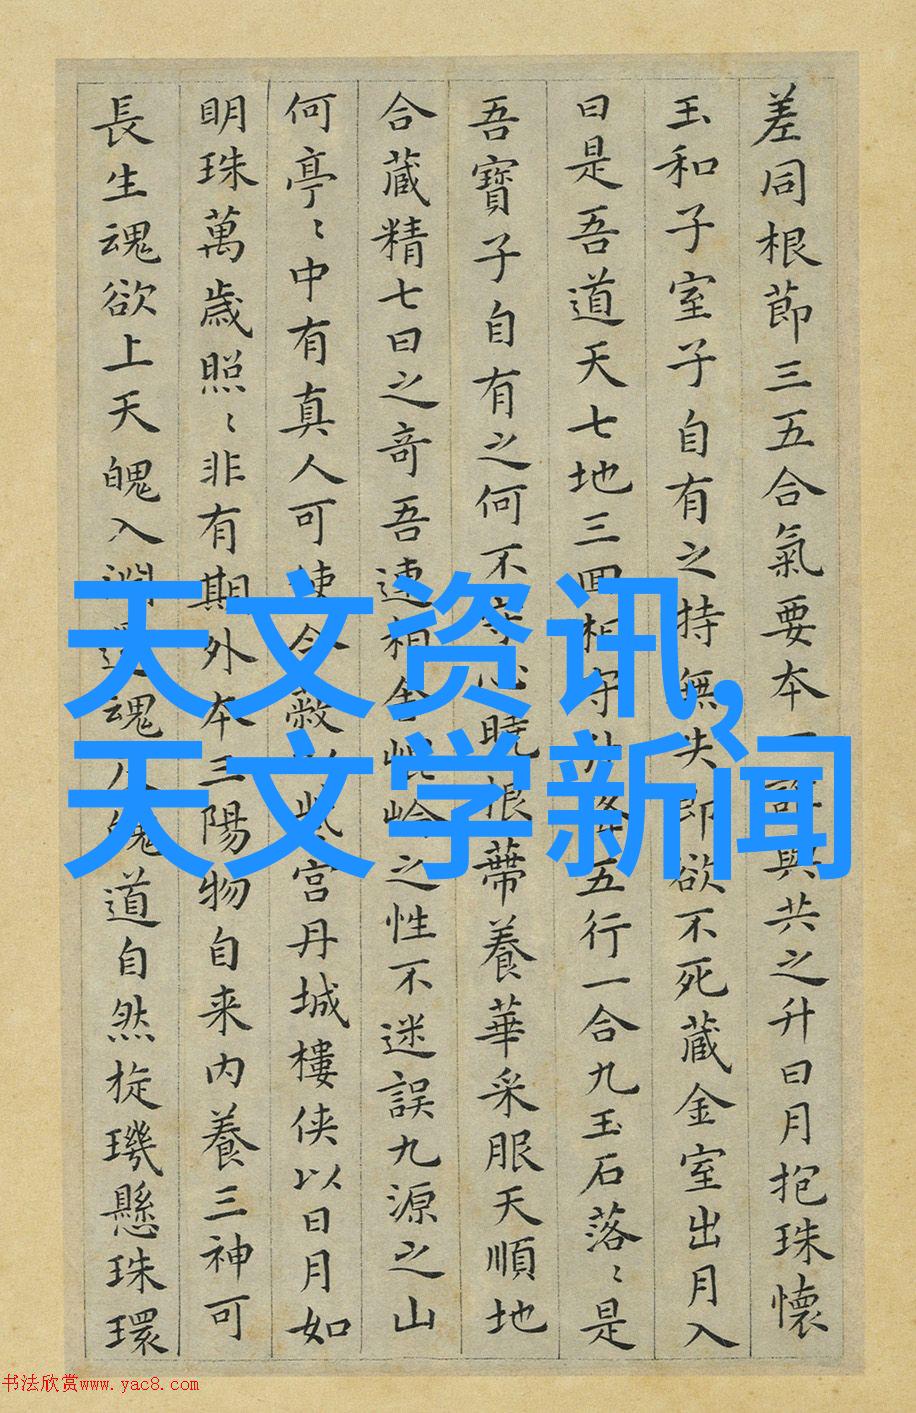 差同根節三五合氣要本與共之升日月抱珠懷
玉和子室子自有之持無失即欲不死藏金室出月入
日是吾道天七地三回相守升降五行一合九玉石落〻是
吾寶子自有之何不守心曉根蔕養華采服天順地
合藏精七日之奇吾連相舍崐崘之性不迷誤九源之山
何亭〻中有真人可使令蔽以紫宮丹城樓俠以日月如
明珠萬歲照〻非有期外本三陽物自来内養三神可
長生魂欲上天魄入淵還魂魄道自然旋璣懸珠環
天文资讯,
天文学新闻
书法欣赏www.yac8.com